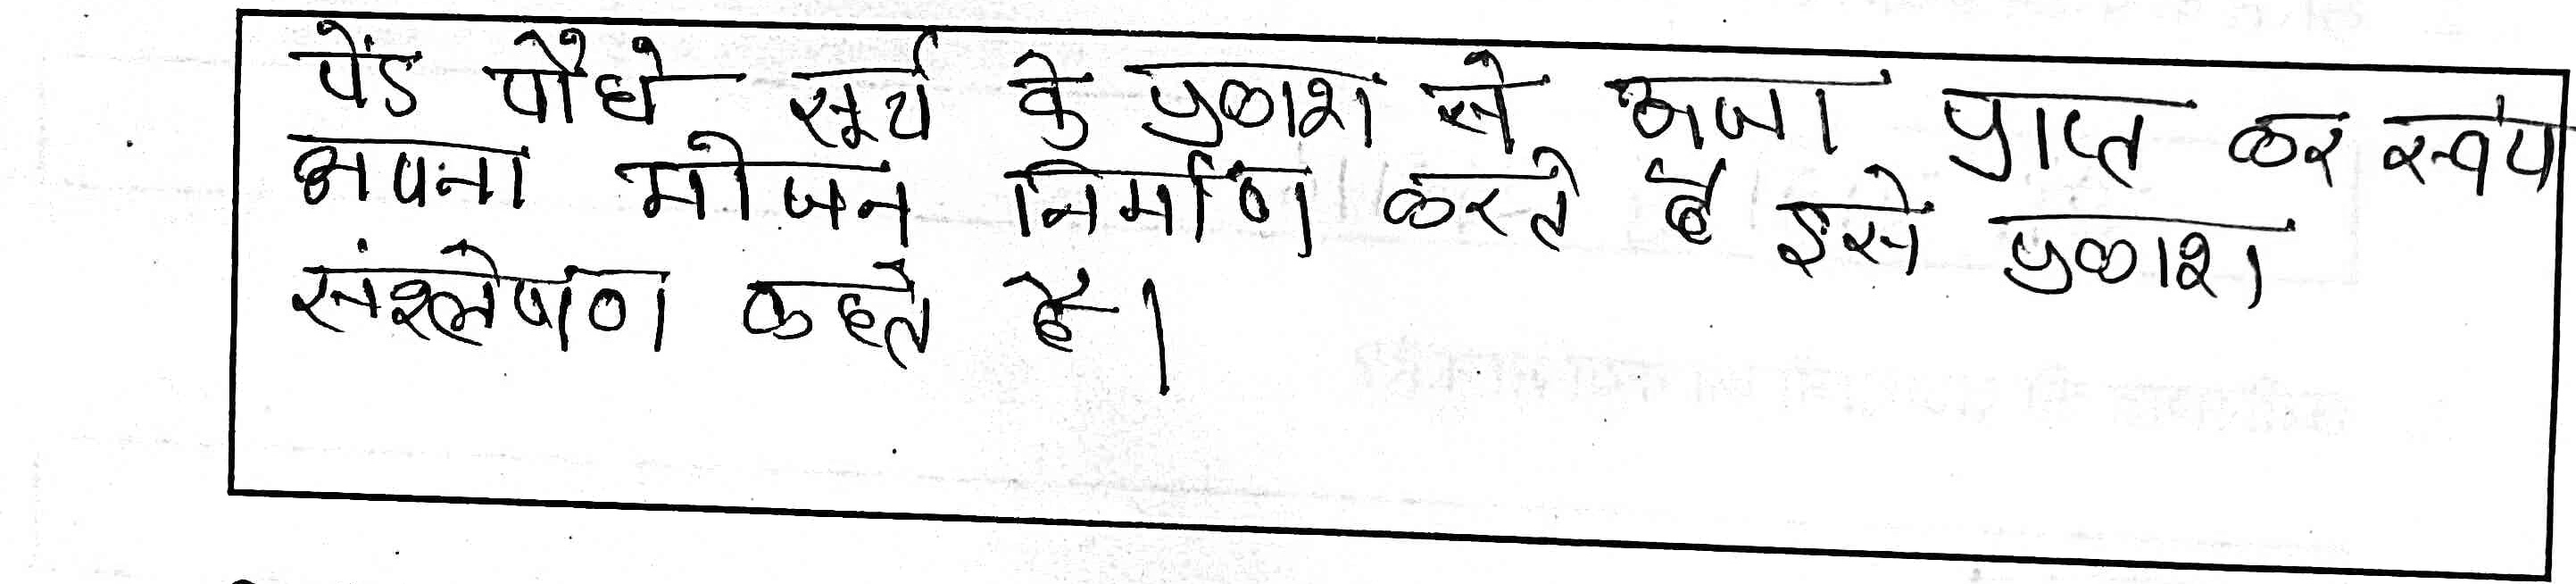 पेंड पौधे सूर्य के प्रकाश से ऊजा प्राप्त कर स्वंय
अपना भोजन निर्माण करते है इसे प्रकाश
संश्लेषण कहते है।